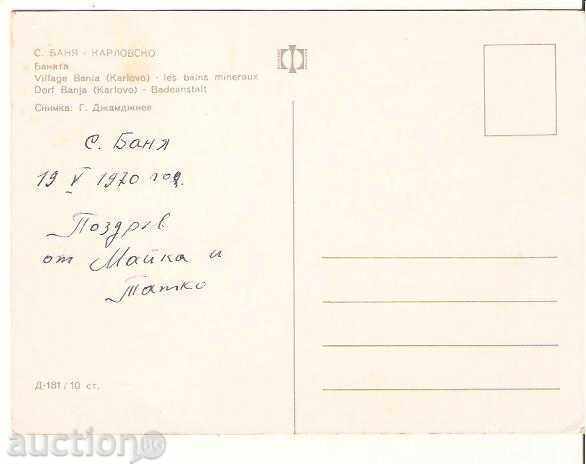 С. БАНЯ - КАРЛОВСКО
Банята
Village Bania (Karlovo) - les bains mineraux
Dorf Banja (Karlovo) - Badeanstalt
Снимка: Г. Джамджиев
с. Баня
19 V 1970 год.
Поздрав
от Майка и
Татко
Д-181 / 10 ст.
auction.bg